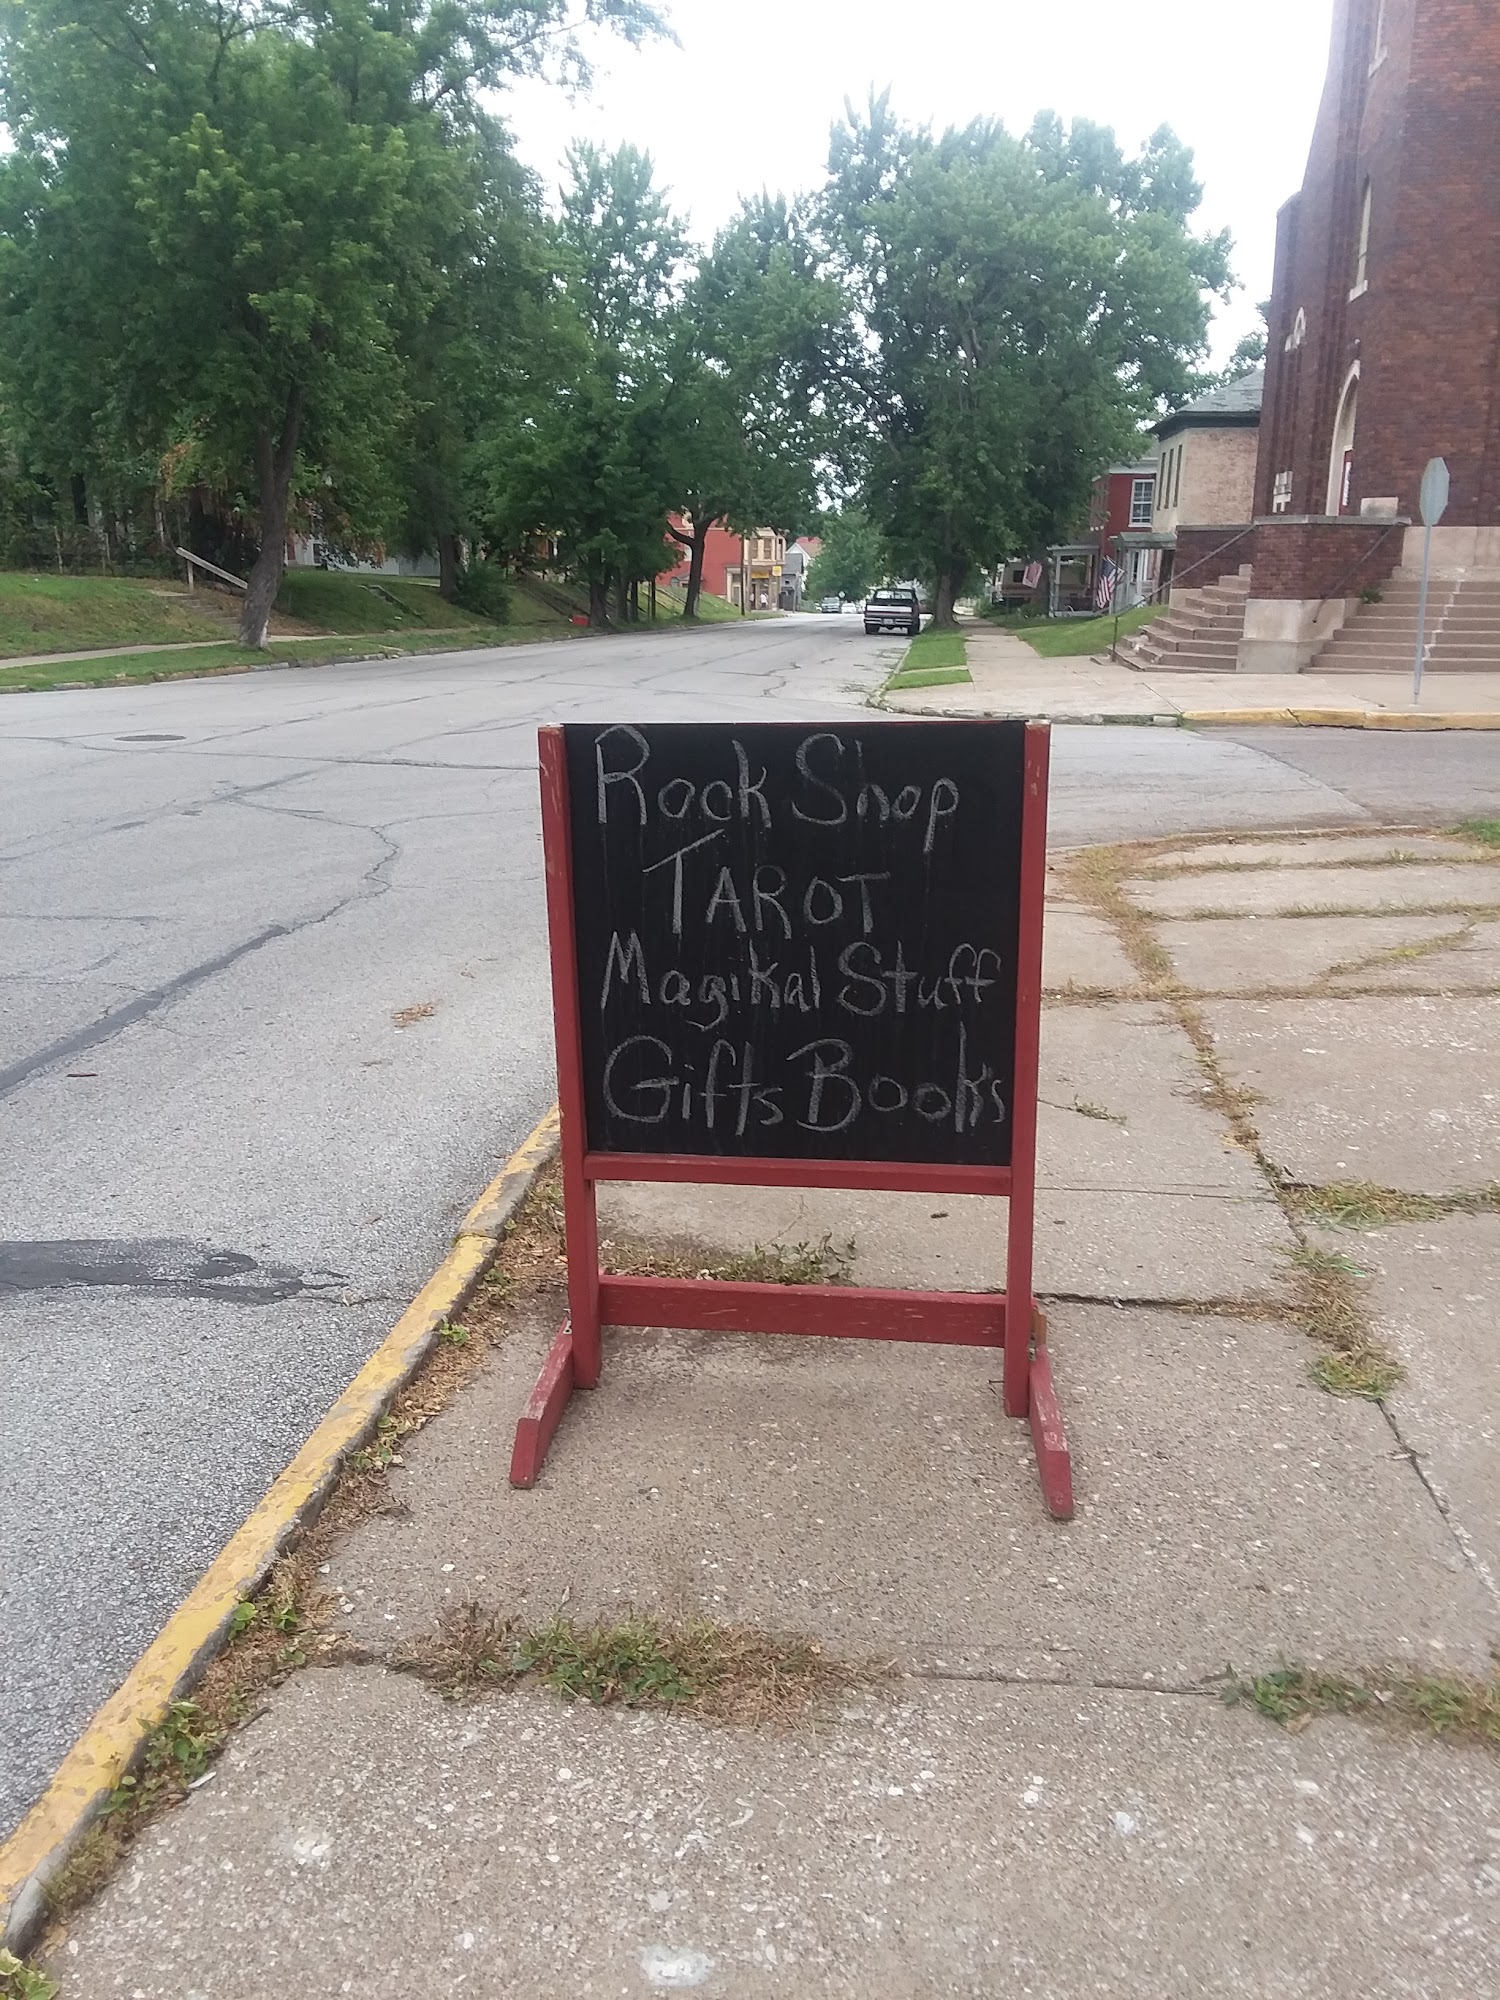 Rock Shop
TAROT
Magikal Stuff
Gifts Books